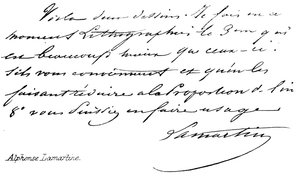 Voila deux dessins. Je fais en ce
moment Lithographier le 3me qui
est beaucoup mieux que ceux-ci
s'ils vous conviennent et qu'en les
faisant réduire a la Proportion de l'in
8° vous Puissiez en faire usage
Lamartine
Alphonse Lamartine.